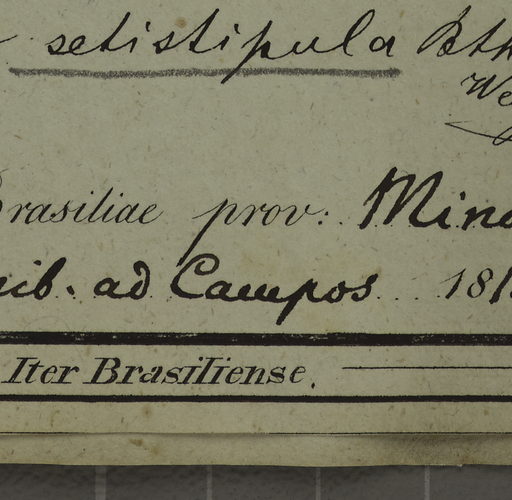 setistipula Bth
We
Brasiliae prov: Mina
ib. ad Campos 181
Iter Brasiliense.